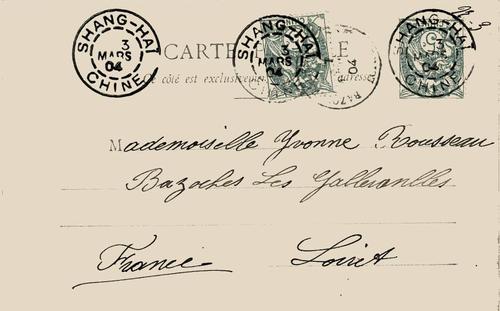 SHANG-HAI
3
MARS
04
CHINE
SHANG-HAI
3
MARS
04
CHINE
SHANG-HAI
3
MARS
04
CHINE
CARTE
Ce côté est exclusivement adresse
04
Mademoiselle Yvonne Rousseau
Bazoches Les Gallerandes
France Loiret